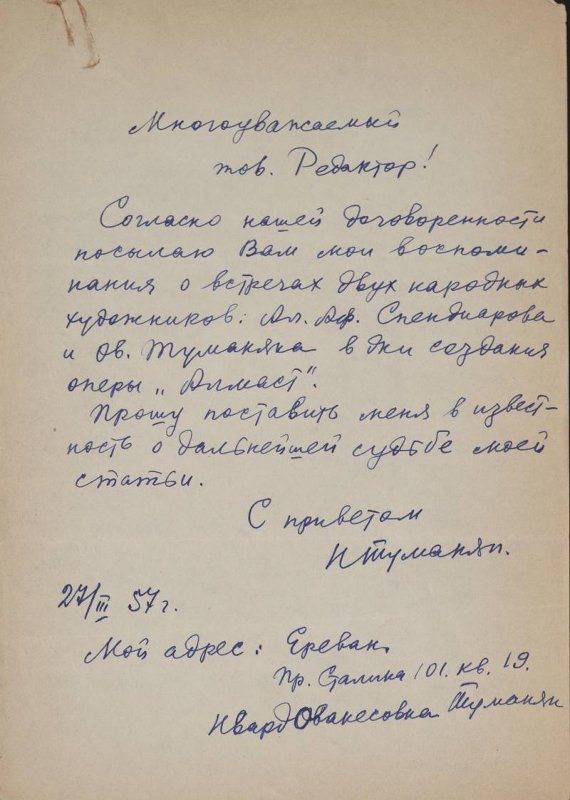 Многоуважаемый
тов. Редактор!
Согласно нашей договоренности
посылаю Вам мои воспоми-
нания о встречах двух народных
художников: Ал. Аф. Спендиарова
и Ов. Туманяна в дни создания
оперы „Алмаст".
Прошу поставить меня в извест-
ность о дальнейшей судьбе моей
статьи.
С приветом
НТуманян.
27/III 57 г.
Мой адрес: Ереван.
Пр. Сталина 101. кв. 19.
Нвард Ованесовна Туманян